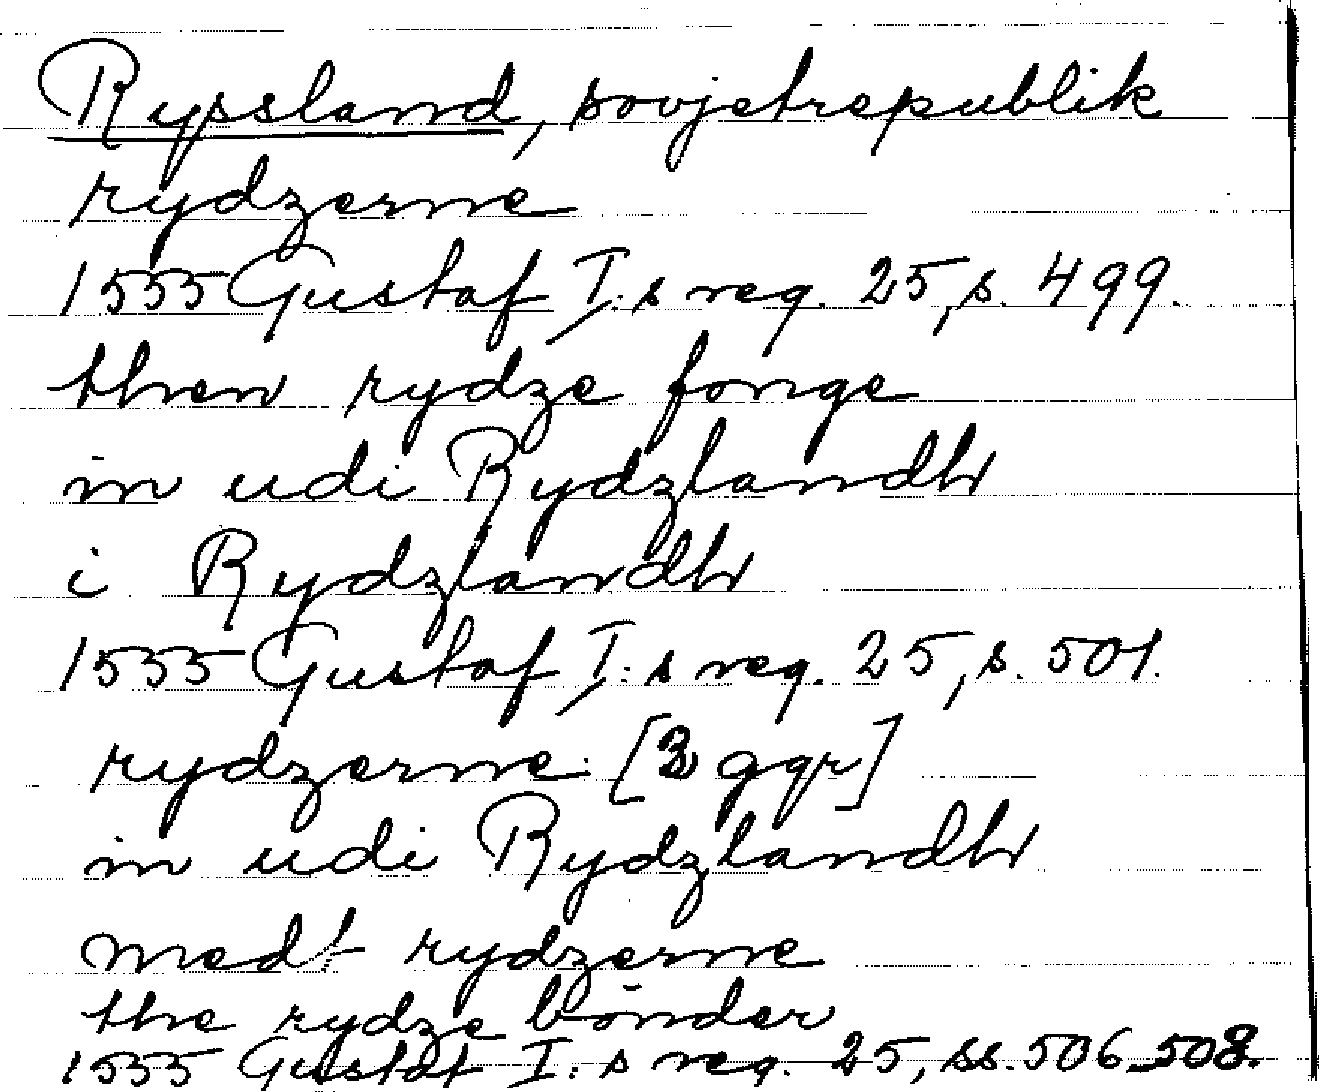 Ryssland, sovjetrepublik
rydzerne
1555 Gustaf I:s reg. 25, s. 499.
then rydze fonge
in udi Rydzlandh
i Rydzlandh
1555 Gustaf I:s reg. 25, s. 501.
rydzerne [3 ggr]
in udi Rydzlandh
medt rydzerne
the rydze bönder
1555 Gustaf I:s reg. 25, ss. 506-508.